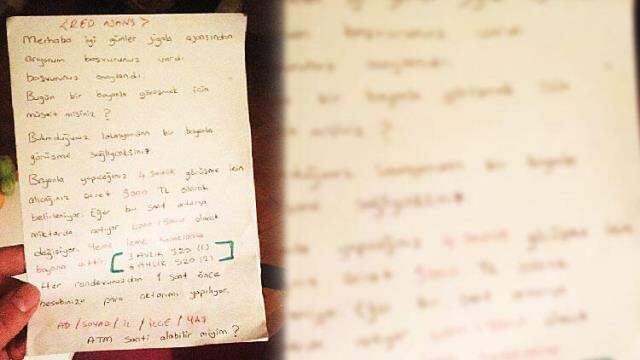 <RED NANS>
Merhaba iyi günler jigolo ajansından
arıyorum başvurunuz vardı
başvurunuz onaylandı.
Bugün bir bayanla görüşmek için
müsait misiniz ?
Bulunduğunuz lokasyondan bir bayanla
görüşme sağlıycaksınız
Bayanla yapacağınız 4 saatlik görüşme için
alacağınız ücret 3000 TL olarak
belirleniyor. Eğer bu saat artarsa
miktarda artıyor olarak
değişiyor. Yeme içme
bayana aittir. [3 AYLIK 320 (1)
6 AYLIK 520 (2)]
Her randevunuzdan 1 saat önce
hesabınıza para aktarımı yapılıyor.
AD / SOYAD / İL / İLÇE / YAŞ
ATM saati alabilir miyim ?